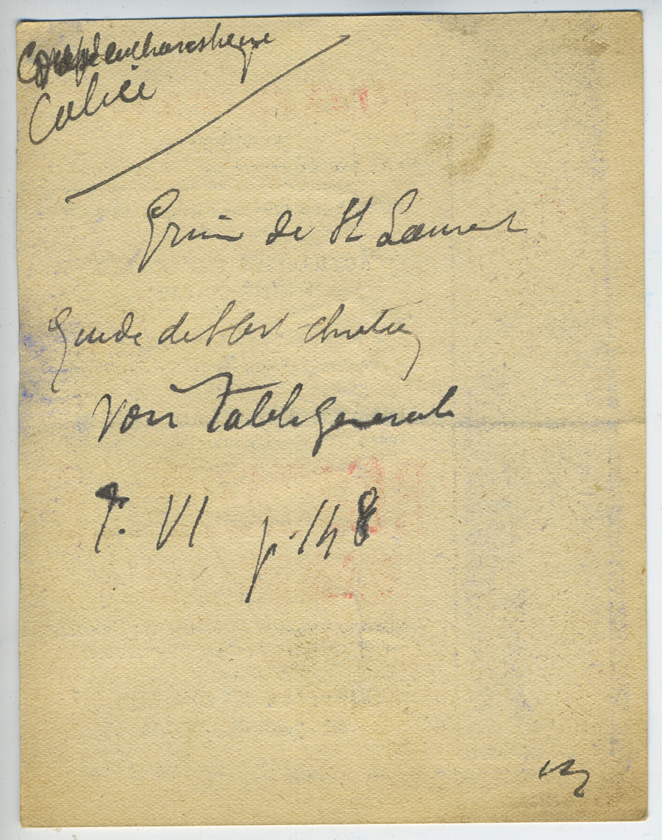 Coupe eucharistique
Calice
Grim de St Laurent
Guide de l'art chretien
Voir Table generale
T. VI p. 148